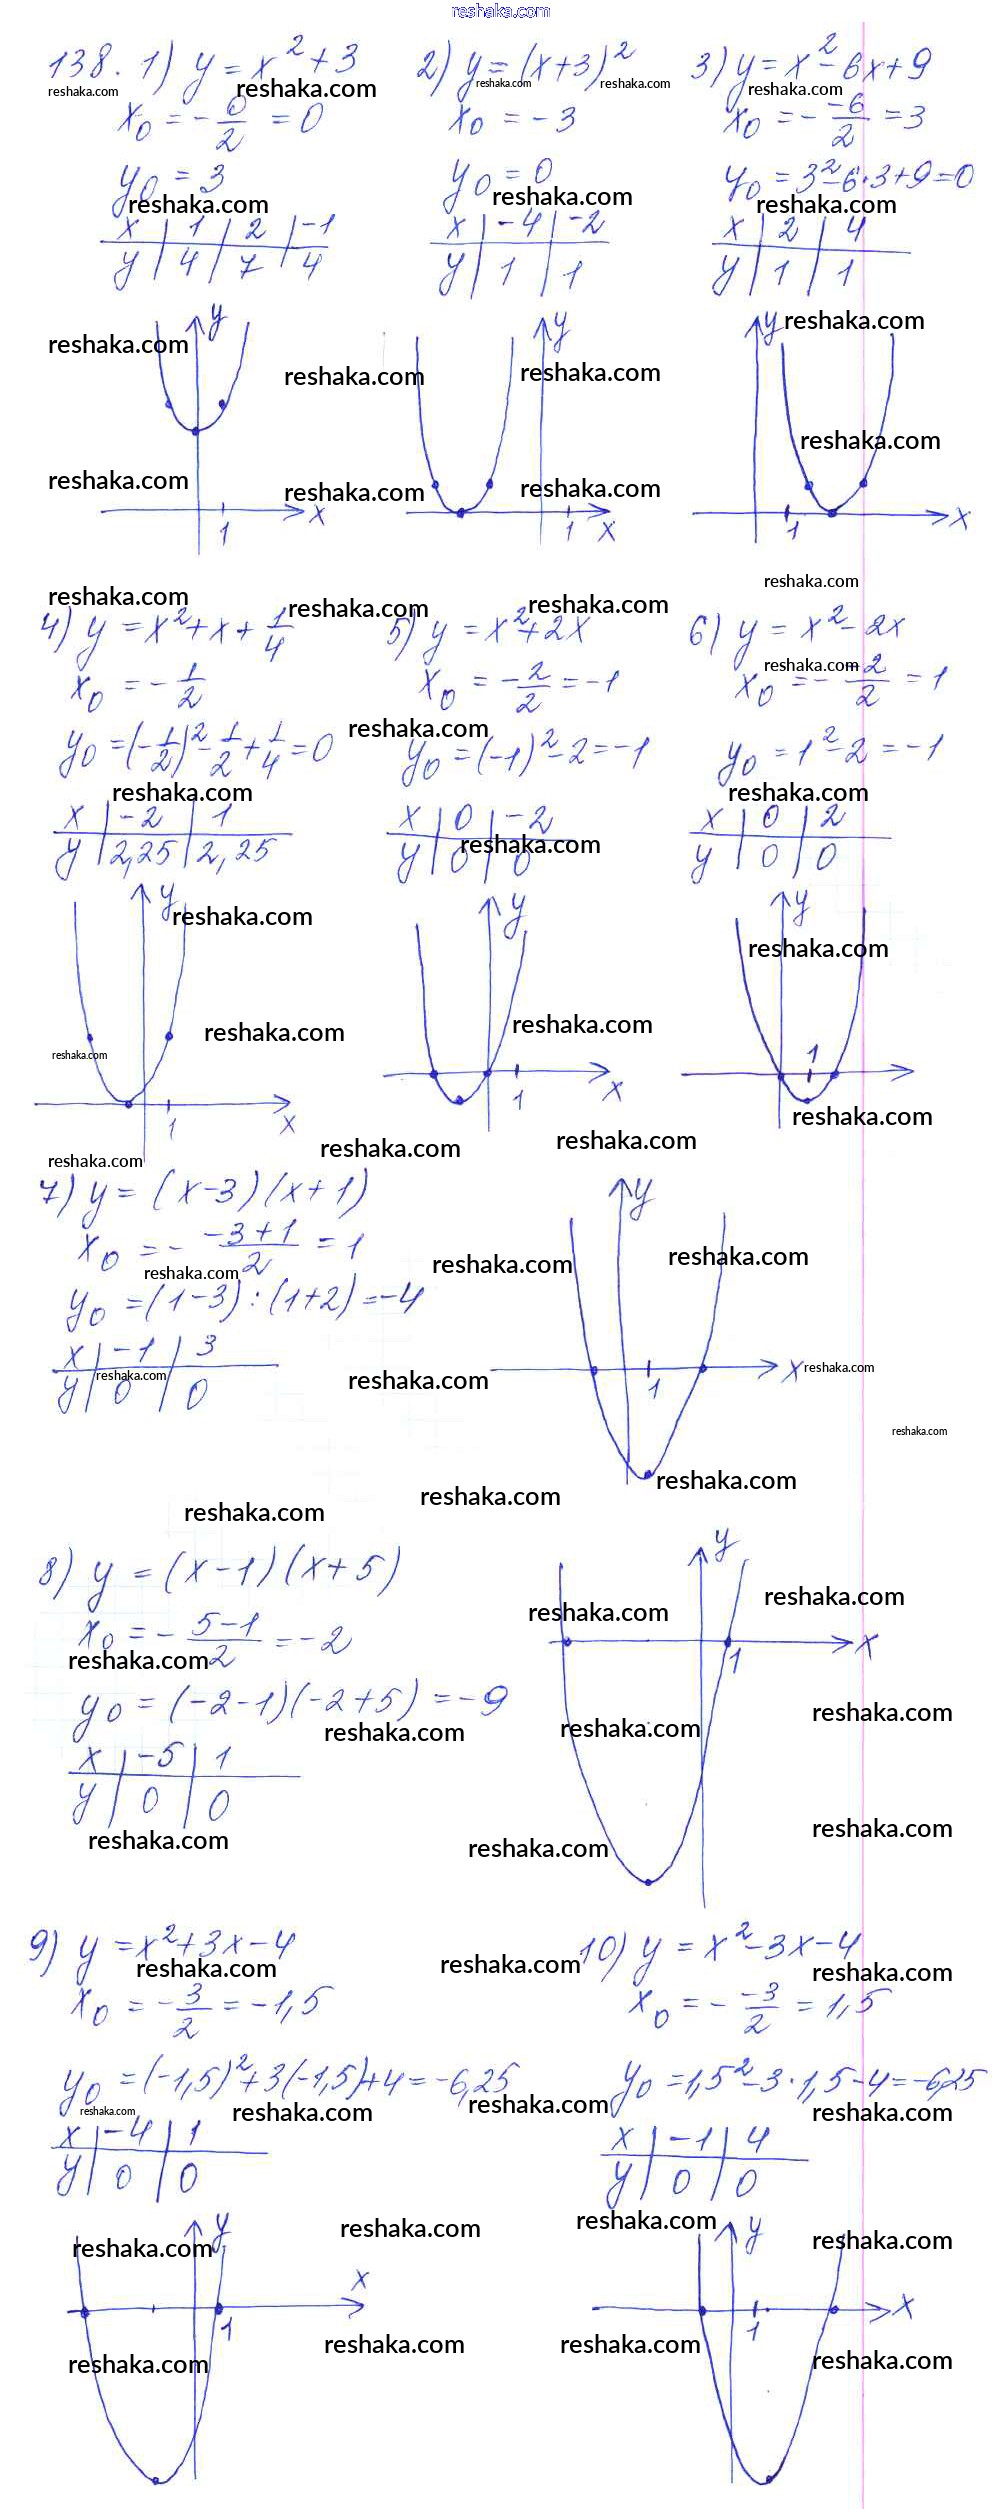 reshaka.com
138. 1) y = x² + 3
x₀ = - 0/2 = 0
y₀ = 3
x | 1 | 2 | -1
y | 4 | 7 | 4
y
1 x
2) y = (x+3)²
x₀ = -3
y₀ = 0
x | -4 | -2
y | 1 | 1
y
1 x
3) y = x² - 6x + 9
x₀ = - -6/2 = 3
y₀ = 3² - 6·3 + 9 = 0
x | 2 | 4
y | 1 | 1
y
1 x
4) y = x² + x + 1/4
x₀ = - 1/2
y₀ = (-1/2)² - 1/2 + 1/4 = 0
x | -2 | 1
y | 2,25 | 2,25
y
1 x
5) y = x² + 2x
x₀ = - 2/2 = -1
y₀ = (-1)² - 2 = -1
x | 0 | -2
y | 0 | 0
y
1 x
6) y = x² - 2x
x₀ = - -2/2 = 1
y₀ = 1² - 2 = -1
x | 0 | 2
y | 0 | 0
y
1
7) y = (x-3)(x+1)
x₀ = - -3+1/2 = 1
y₀ = (1-3):(1+2) = -4
x | -1 | 3
y | 0 | 0
y
1 x
8) y = (x-1)(x+5)
x₀ = - 5-1/2 = -2
y₀ = (-2-1)(-2+5) = -9
x | -5 | 1
y | 0 | 0
y
1 x
9) y = x² + 3x - 4
x₀ = - 3/2 = -1,5
y₀ = (-1,5)² + 3(-1,5) + 4 = -6,25
x | -4 | 1
y | 0 | 0
y
x
1
10) y = x² - 3x - 4
x₀ = - -3/2 = 1,5
y₀ = 1,5² - 3·1,5 - 4 = -6,25
x | -1 | 4
y | 0 | 0
y
1 x